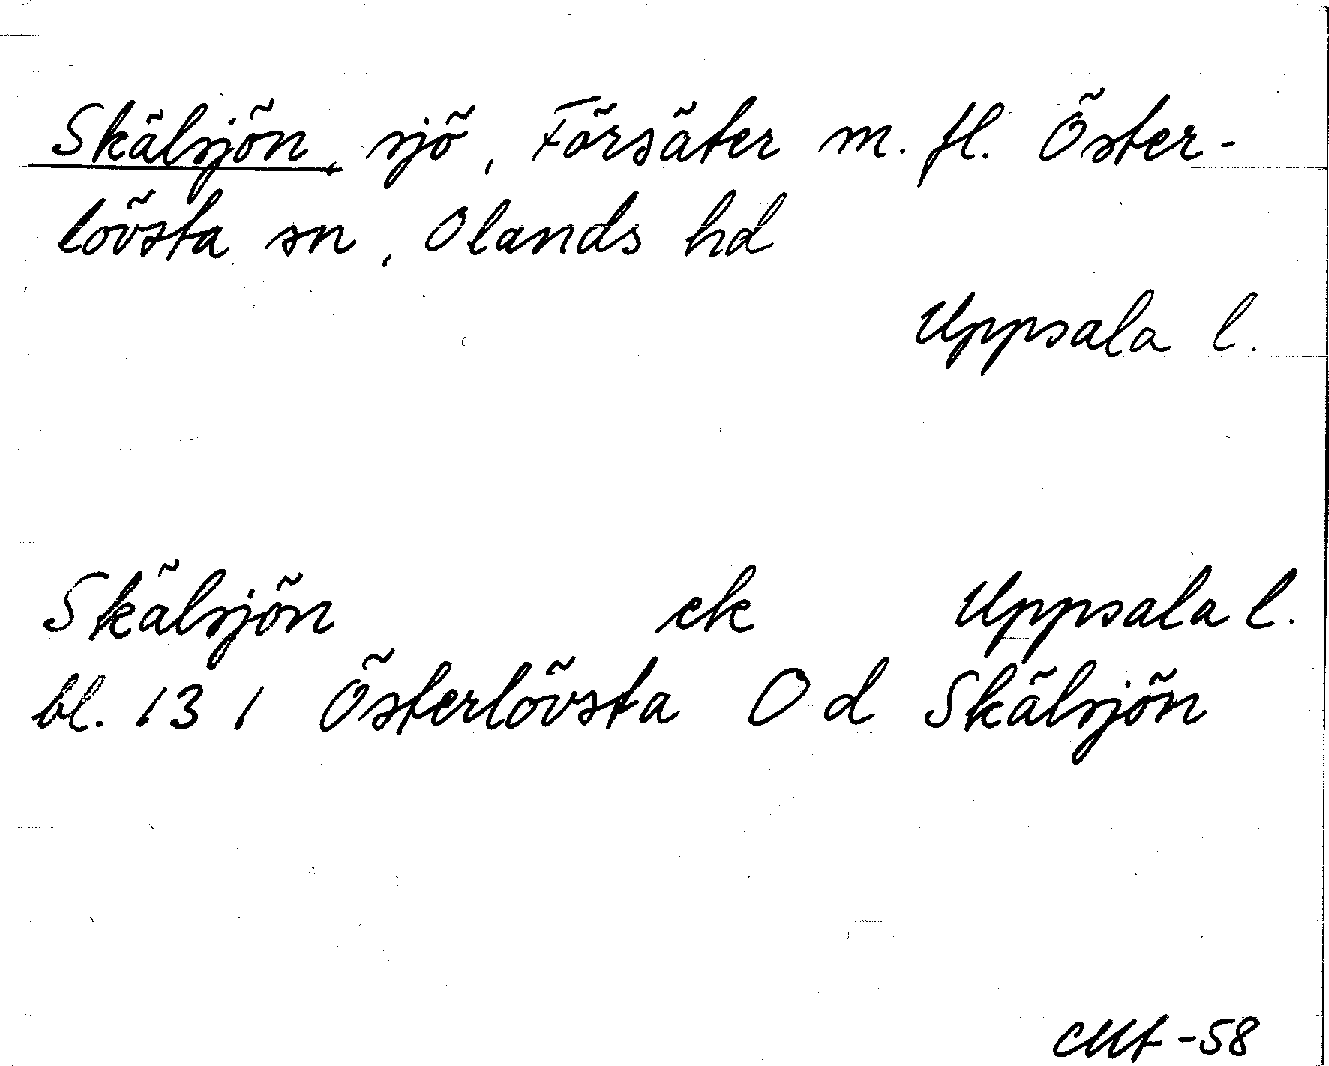 Skälsjön, sjö, Försäter m. fl. Öster-
lövsta sn, Olands hd
Uppsala l.
Skälsjön ek Uppsala l.
bl. 131 Österlövsta Od Skälsjön
-58